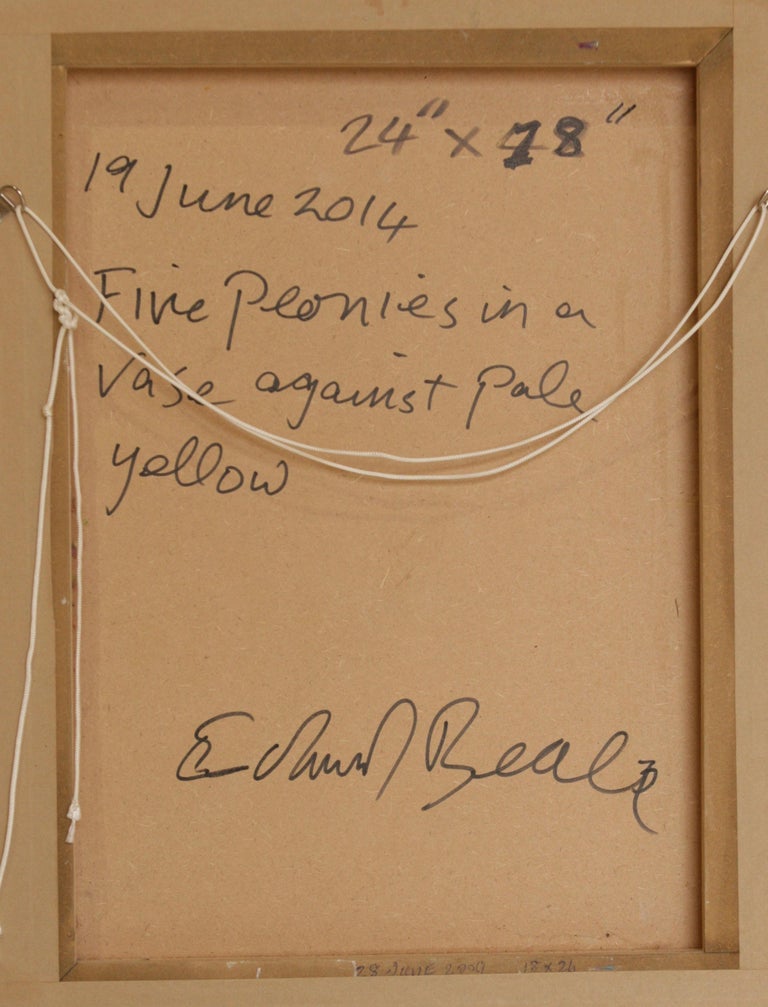 24" x 18"
19 June 2014
Five Peonies in a
vase against pale
yellow
Edward Beale
28 JUNE 2000 18 x 24